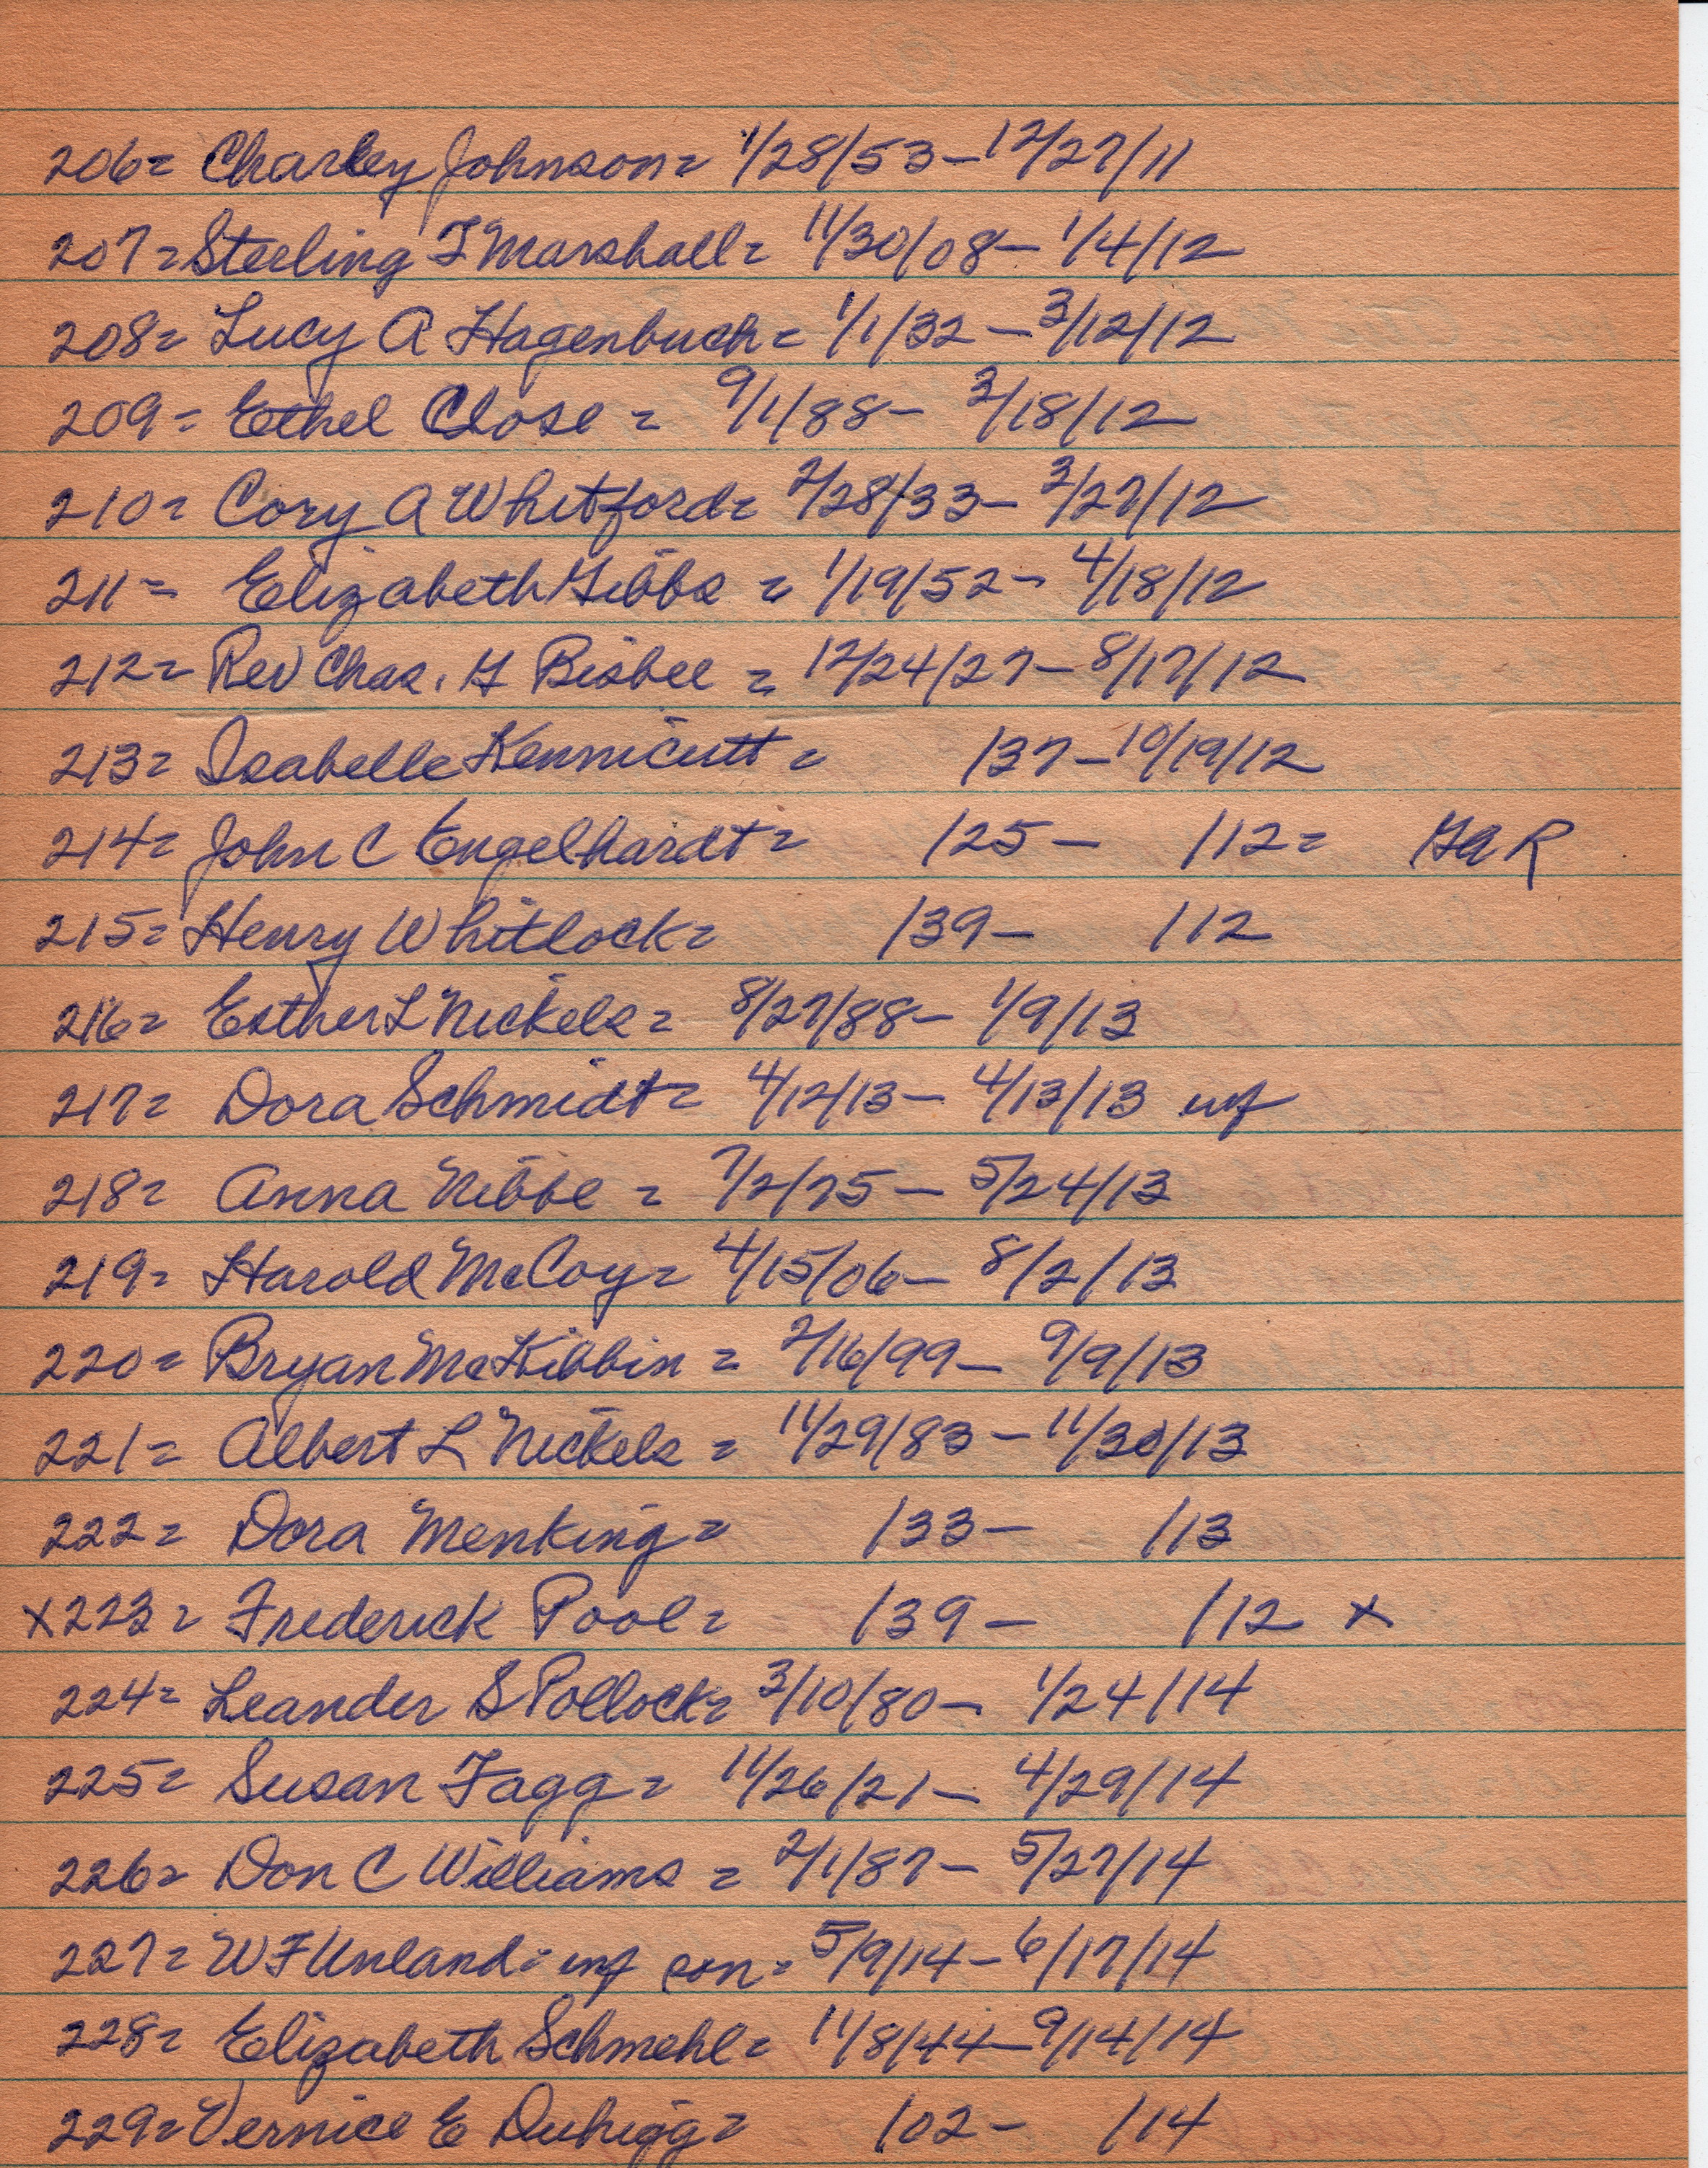 206= Charley Johnson= 1/28/53-12/27/11
207= Sterling F Marshall= 11/30/08- 1/4/12
208= Lucy A Hagenbuch= 1/1/32 - 3/12/12
209= Ethel Close = 9/1/88- 3/18/12
210= Cory A Whitford= 2/28/33- 3/27/12
211= Elizabeth Gibbs = 1/19/52- 4/18/12
212= Rev Chas. G Bisbee = 12/24/27- 8/17/12
213= Isabelle Kennicutt = /37-10/19/12
214= John C Engelhardt= /25- /12= GAR
215= Henry Whitlock= /39- /12
216= Esther L Nickels= 8/27/88- 1/9/13
217= Dora Schmidt= 4/12/13- 4/13/13 inf
218= Anna Nibbe = 7/2/75- 5/24/13
219= Harold McCoy= 4/15/06- 8/2/13
220= Bryan McKibbin = 2/16/99- 9/9/13
221= Albert L Nickels = 11/29/83-11/30/13
222= Dora Menking= /33- /13
x223= Frederick Pool= /39- /12 x
224= Leander S Pollock= 3/10/80- 1/24/14
225= Susan Fagg= 11/26/21- 4/29/14
226= Don C Williams = 2/1/87- 5/27/14
227= W F Unland= inf son= 5/9/14-6/17/14
228= Elizabeth Schmehl= 11/8/44-9/14/14
229= Vernice E Duhigg= /02- /14